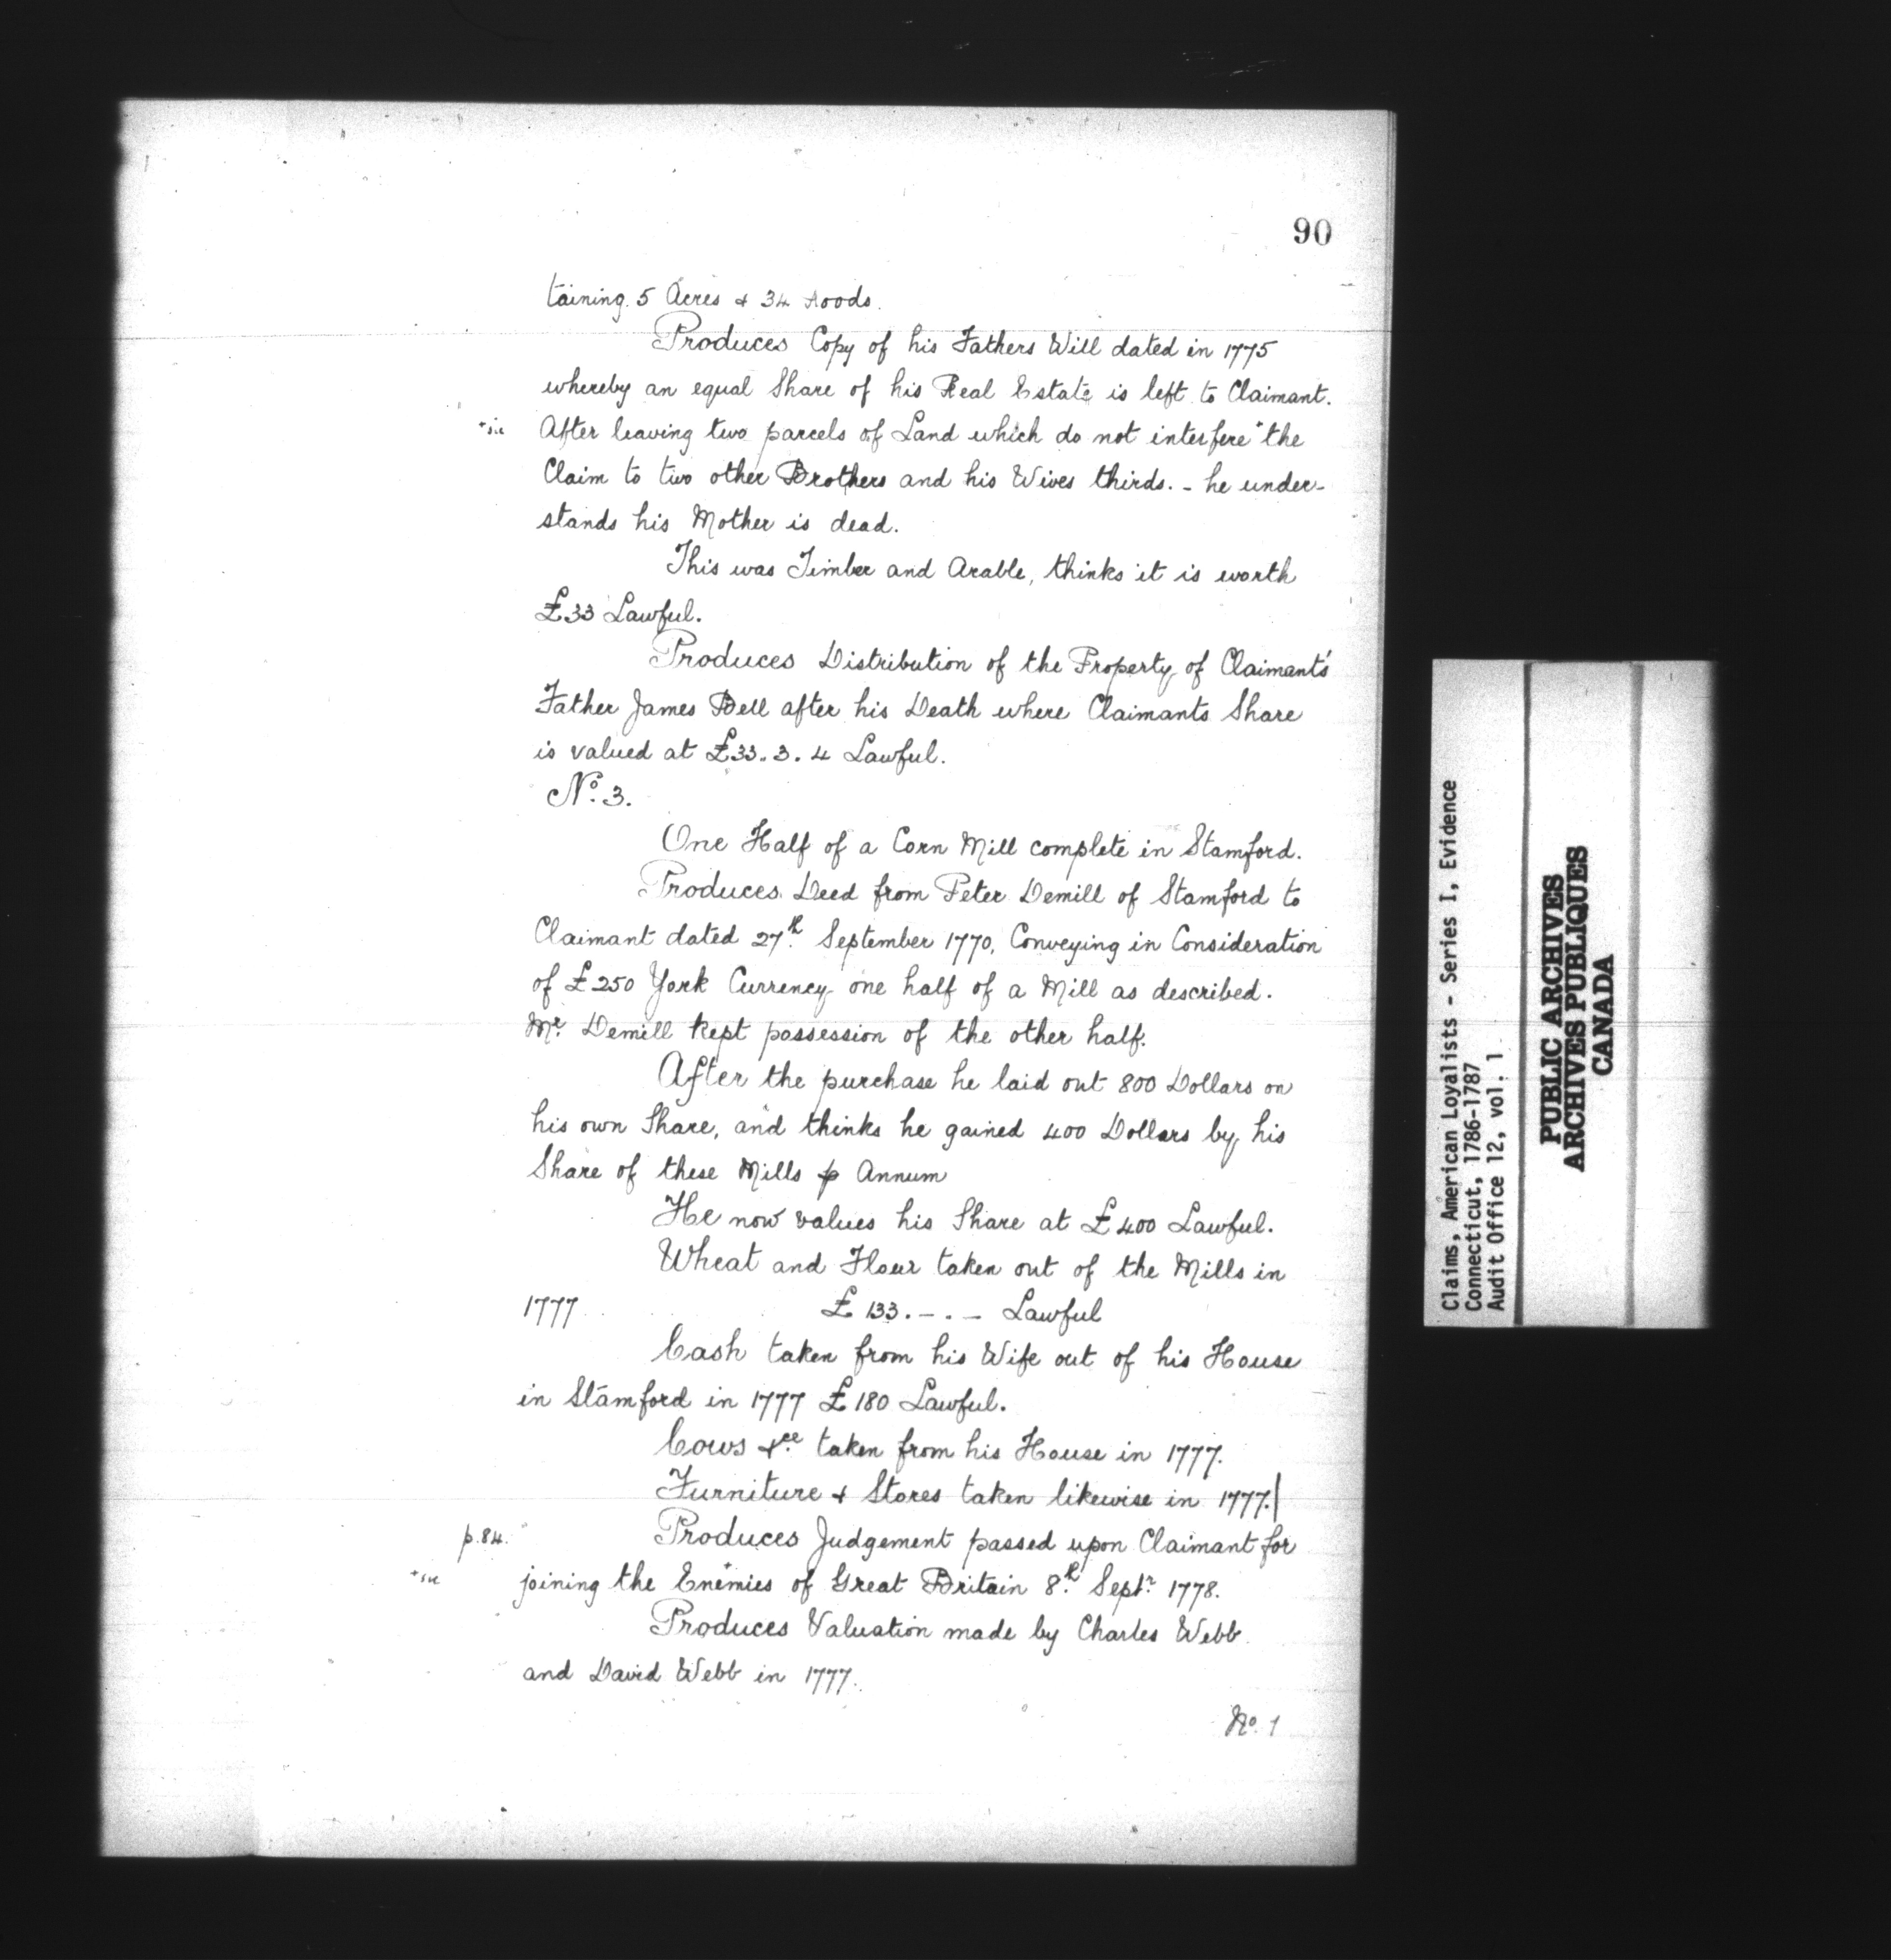 90
taining. 5 Acres & 34 roods.
Produces Copy of his Fathers Will dated in 1775
whereby an equal Share of his Real Estate is left to Claimant.
+sic After leaving two parcels of Land which do not interfere + the
Claim to two other Brothers and his Wives thirds. - he under-
stands his Mother is dead.
This was Timber and Arable, thinks it is worth
£33 Lawful.
Produces Distribution of the Property of Claimant's
Father James Bell after his Death where Claimants Share
is valued at £33. 3. 4 Lawful.
No. 3.
One Half of a Corn Mill complete in Stamford.
Produces Deed from Peter Demill of Stamford to
Claimant dated 27th September 1770, Conveying in Consideration
of £250 York Currency one half of a Mill as described.
Mr. Demill kept possession of the other half.
After the purchase he laid out 800 Dollars on
his own Share, and thinks he gained 400 Dollars by his
Share of these Mills p Annum
He now values his Share at £400 Lawful.
Wheat and Flour taken out of the Mills in
1777 £133. - . - Lawful
Cash taken from his Wife out of his House
in Stamford in 1777 £180 Lawful.
Cows &ce. taken from his House in 1777.
Furniture & Stores taken likewise in 1777.|
p. 84. Produces Judgement passed upon Claimant for
+sic joining the Enemies + of Great Britain 8th Septr. 1778.
Produces Valuation made by Charles Webb
and David Webb in 1777.
No. 1
Claims, American Loyalists - Series I, Evidence
Connecticut, 1786-1787
Audit Office 12, vol. 1
PUBLIC ARCHIVES
ARCHIVES PUBLIQUES
CANADA